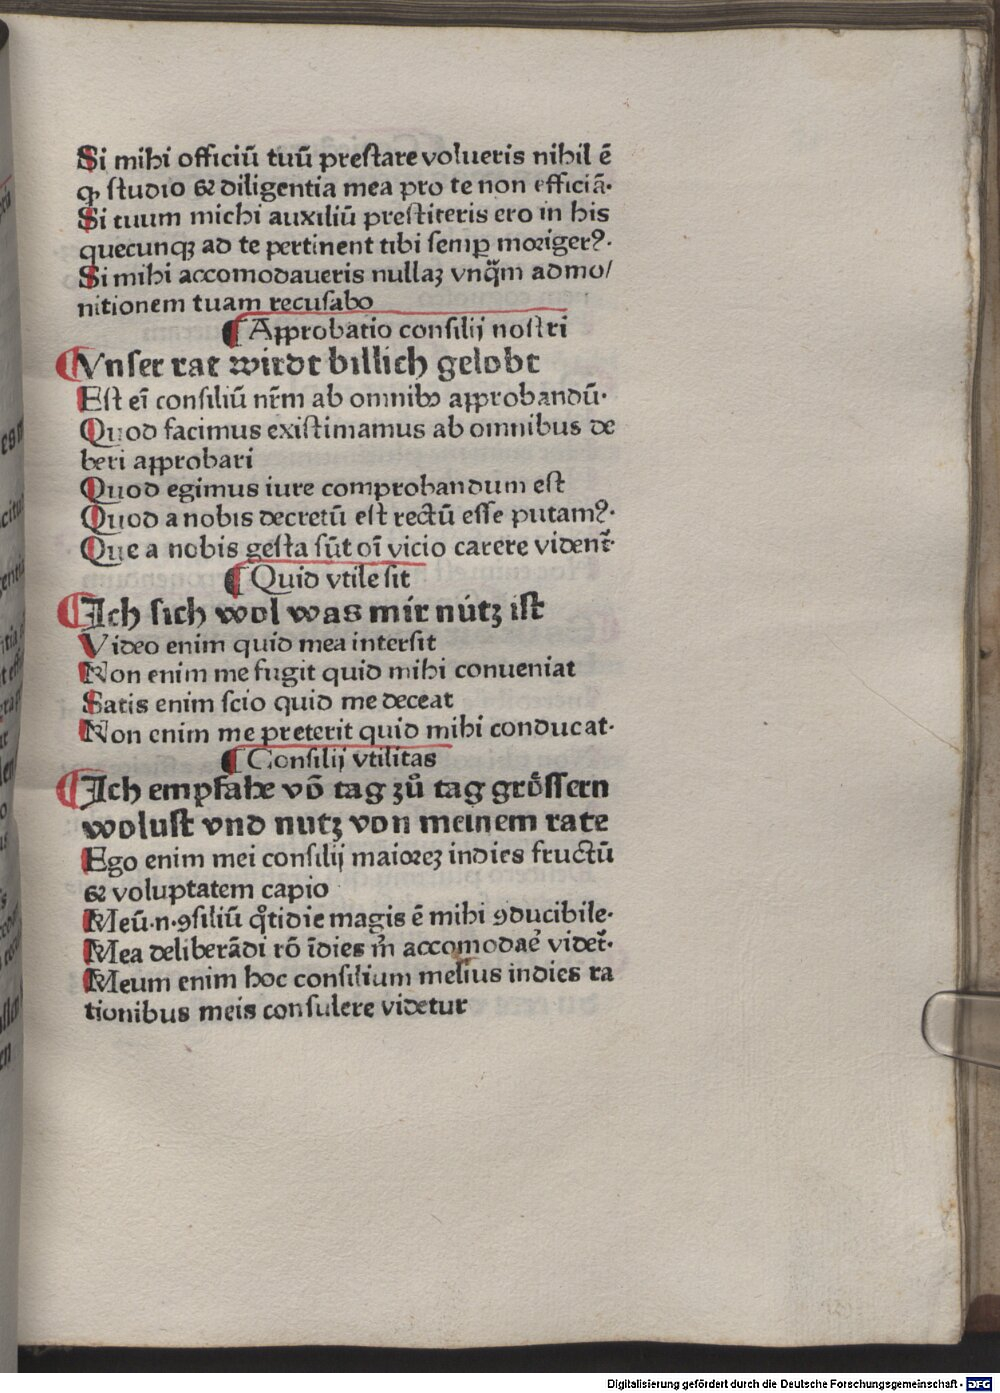 Si mihi officiū tuū prestare volueris nihil ē
ꝙ studio & diligentia mea pro te non efficiā.
Si tuum michi auxiliū prestiteris ero in his
quecunqꝫ ad te pertinent tibi semꝑ moriger?.
Si mihi accomodaueris nullaꝫ vnq̈m admo/
nitionem tuam recusabo
¶ Approbatio consilij nostri
¶ Vnser rat wirdt billich gelobt
Est eī consiliū nr̄m ab omnibꝰ approbandū.
Quod facimus existimamus ab omnibus de
beri approbari
Quod egimus iure comprobandum est
Quod a nobis decretū est rectū esse putam?.
Que a nobis gesta sūt oī vicio carere vident̄.
¶ Quid vtile sit
¶ Ich sich wol was mir nútz ist
Video enim quid mea intersit
Non enim me fugit quid mihi conueniat
Satis enim scio quid me deceat
Non enim me preterit quid mihi conducat.
¶ Consilij vtilitas
¶ Ich empfahe vō tag zů tag grössern
wolust vnd nutz von meinem rate
Ego enim mei consilij maioreꝫ indies fructū
& voluptatem capio
Meū.n.ꝯsiliū q̊tidie magis ē mihi ꝯducibile.
Mea deliberādi rō īdies m̄ accomodae᷑ videt̄.
Meum enim hoc consilium melius indies ra
tionibus meis consulere videtur
Digitalisierung gefördert durch die Deutsche Forschungsgemeinschaft - DFG